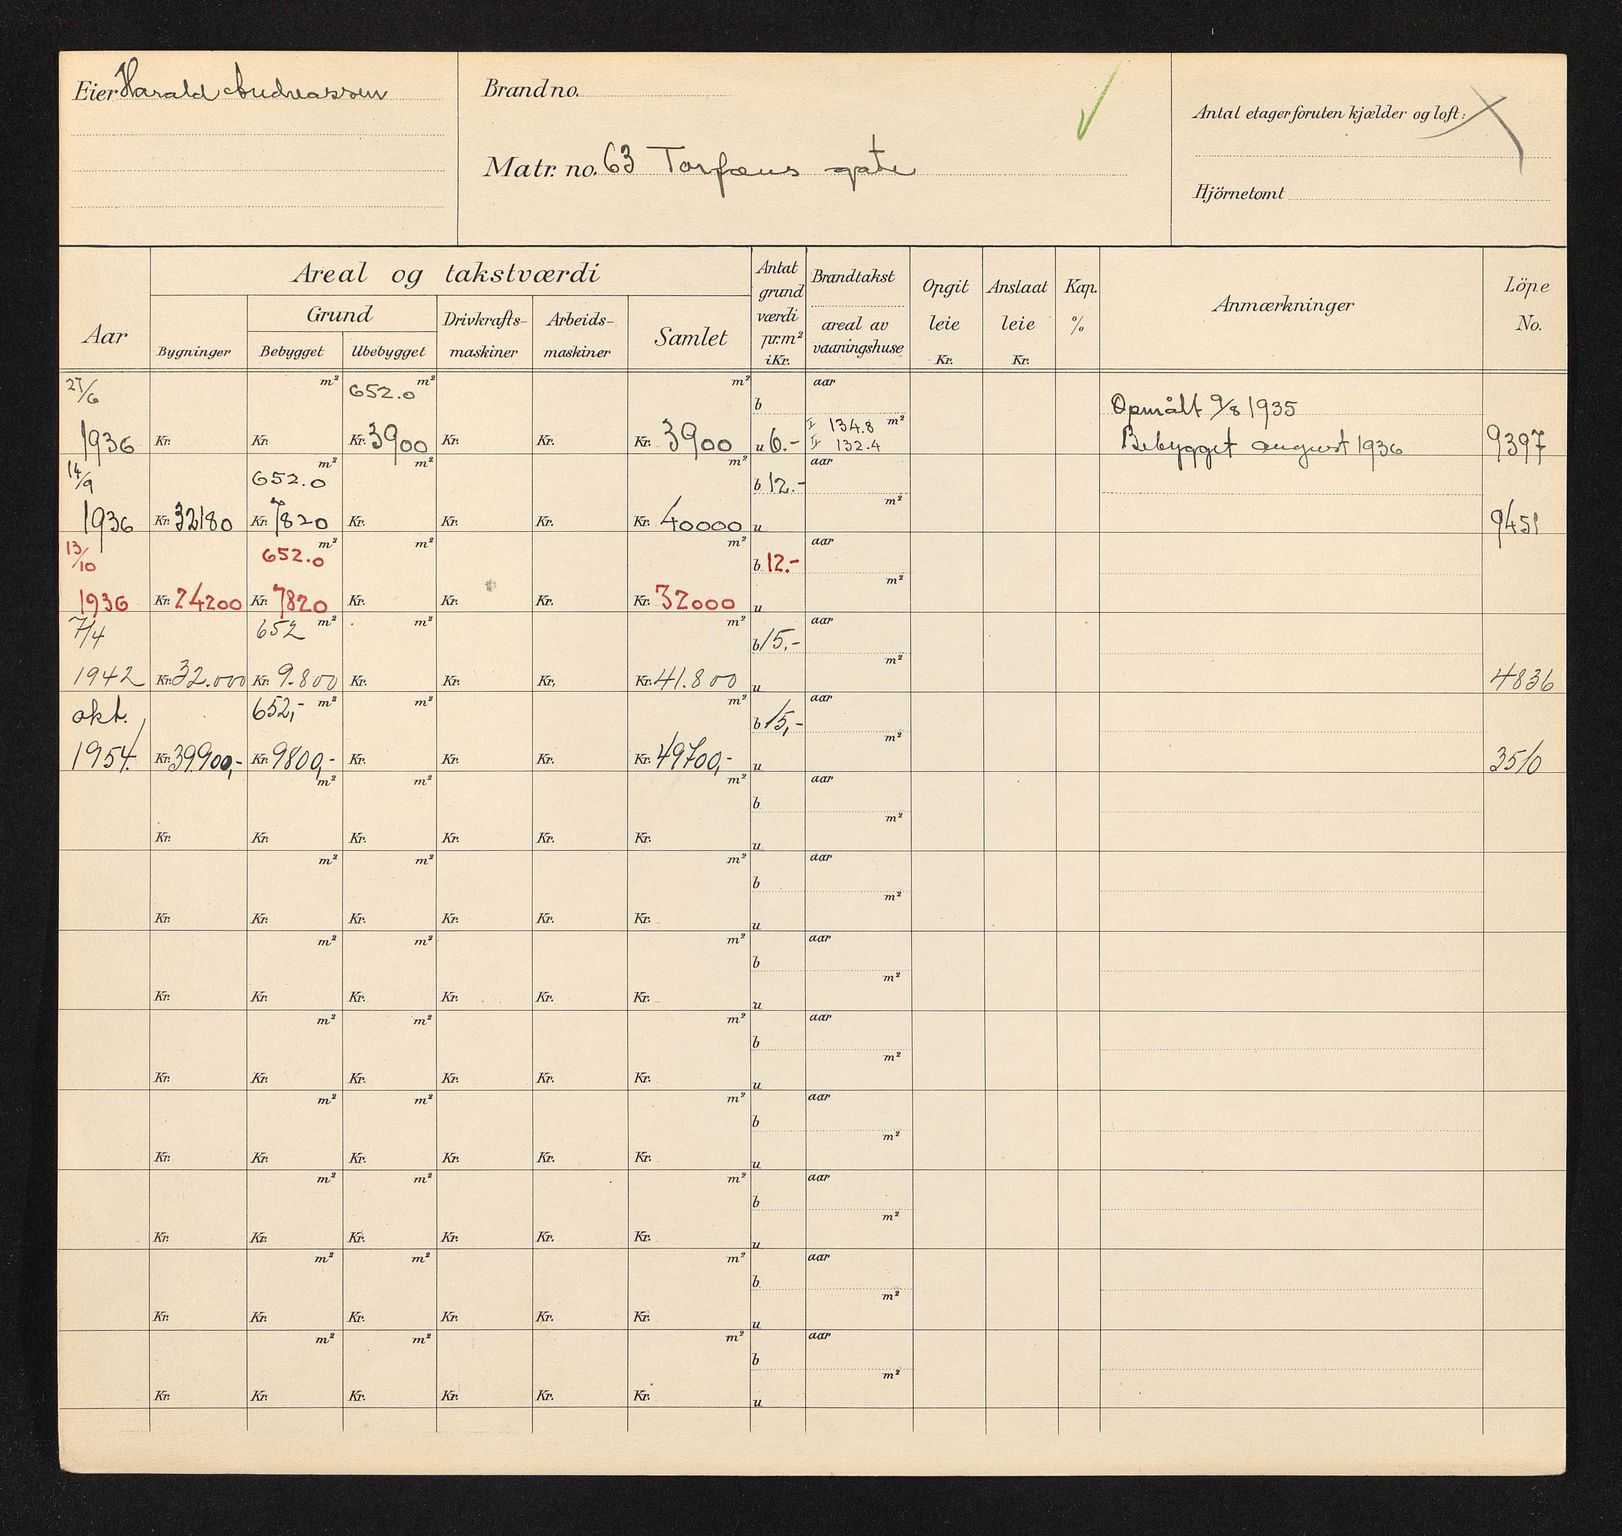 Eier Harald Andreassen
Brand no.
Matr. no. 63 Torfæus gate
Antal etager foruten kjælder og loft:
Hjörnetomt
Aar
Areal og takstværdi
Bygninger
Grund
Bebygget
Ubebygget
Drivkrafts-
maskiner
Arbeids-
maskiner
Samlet
Antat
grund
værdi
pr.m²
i Kr.
Brandtakst
areal av
vaaningshuse
Opgit
leie
Kr.
Anslaat
leie
Kr.
Kap.
%
Anmærkninger
Löpe
No.
27/6 m² 652.0 m² m² b aar Opmålt 9/8 1935
1936 Kr. Kr. Kr. 3900 Kr. Kr. Kr. 3900 u 6.- I 134.8 m² II 132.4 Bebygget august 1936 9397
14/9 652.0 m² m² m² b 12.- aar
1936 Kr. 32180 Kr. 7820 Kr. Kr. Kr. Kr. 40000 u m² 9451
13/10 652.0 m² m² m² b 12.- aar
1936 Kr. 24200 Kr. 7820 Kr. Kr. Kr. Kr. 32000 u m²
7/4 652 m² m² m² b 15,- aar
1942 Kr. 32.000 Kr. 9.800 Kr. Kr. Kr. Kr. 41.800 u m² 4836
okt. 652,- m² m² m² b 15,- aar
1954. Kr. 39900,- Kr. 9800,- Kr. Kr. Kr. Kr. 49700,- u m² 3510
m² m² m² b aar
Kr. Kr. Kr. Kr. Kr. Kr. u m²
m² m² m² b aar
Kr. Kr. Kr. Kr. Kr. Kr. u m²
m² m² m² b aar
Kr. Kr. Kr. Kr. Kr. Kr. u m²
m² m² m² b aar
Kr. Kr. Kr. Kr. Kr. Kr. u m²
m² m² m² b aar
Kr. Kr. Kr. Kr. Kr. Kr. u m²
m² m² m² b aar
Kr. Kr. Kr. Kr. Kr. Kr. u m²
m² m² m² b aar
Kr. Kr. Kr. Kr. Kr. Kr. u m²
m² m² m² b aar
Kr. Kr. Kr. Kr. Kr. Kr. u m²